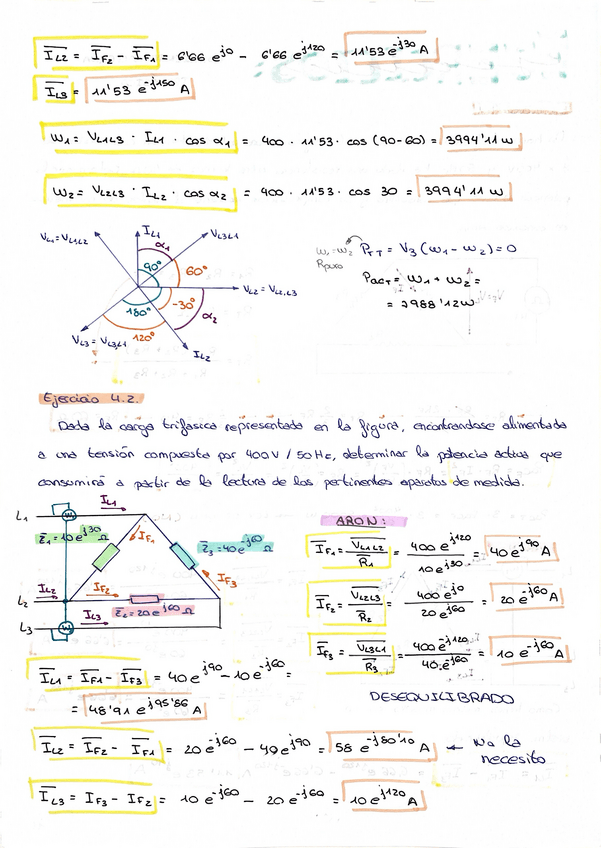 I̅L2 = I̅F2 - I̅F1 = 6'66 e^j0 - 6'66 e^j120 = 11'53 e^-j30 A
I̅L3 = 11'53 e^-j150 A
W1 = VL1L3 · IL1 · cos α1 = 400 · 11'53 · cos (90-60) = 3994'11 w
W2 = VL2L3 · IL2 · cos α2 = 400 · 11'53 · cos 30 = 3994'11 w
VL1 = VL1L2
IL1
VL3L1
α1
90°
60°
VL2 = VL2L3
180°
-30°
α2
120°
VL3 = VL3L1
IL2
W1=W2
R puro
PrT = √3 (W1 - W2) = 0
PacT = W1 + W2 =
= 7988'12w
Ejercicio 4.2.
Dada la carga trifasica representada en la figura, encontrandose alimentada
a una tensión compuesta por 400 V / 50 Hz, determinar la potencia activa que
consumirá a partir de la lectura de los pertinentes aparatos de medida.
L1
IL1
W
Z̅1 = 10 e^j30 Ω
IF1
Z̅3 = 40 e^j60 Ω
IL2
IF2
IF3
L2
IL3
Z̅2 = 20 e^j60 Ω
L3
W
ARON:
I̅F1 = V̅L1L2 / R̅1 = 400 e^j120 / 10 e^j30 = 40 e^j90 A
I̅F2 = V̅L2L3 / R̅2 = 400 e^j0 / 20 e^j60 = 20 e^-j60 A
I̅F3 = V̅L3L1 / R̅3 = 400 e^-j120 / 40 · e^j60 = 10 e^-j60 A
DESEQUILIBRADO
I̅L1 = I̅F1 - I̅F3 = 40 e^j90 - 10 e^-j60 =
= 48'91 e^j95'86 A
I̅L2 = I̅F2 - I̅F1 = 20 e^-j60 - 40 e^j90 = 58 e^-j80'10 A ← No la
necesito
I̅L3 = IF3 - IF2 = 10 e^-j60 - 20 e^-j60 = 10 e^j120 A